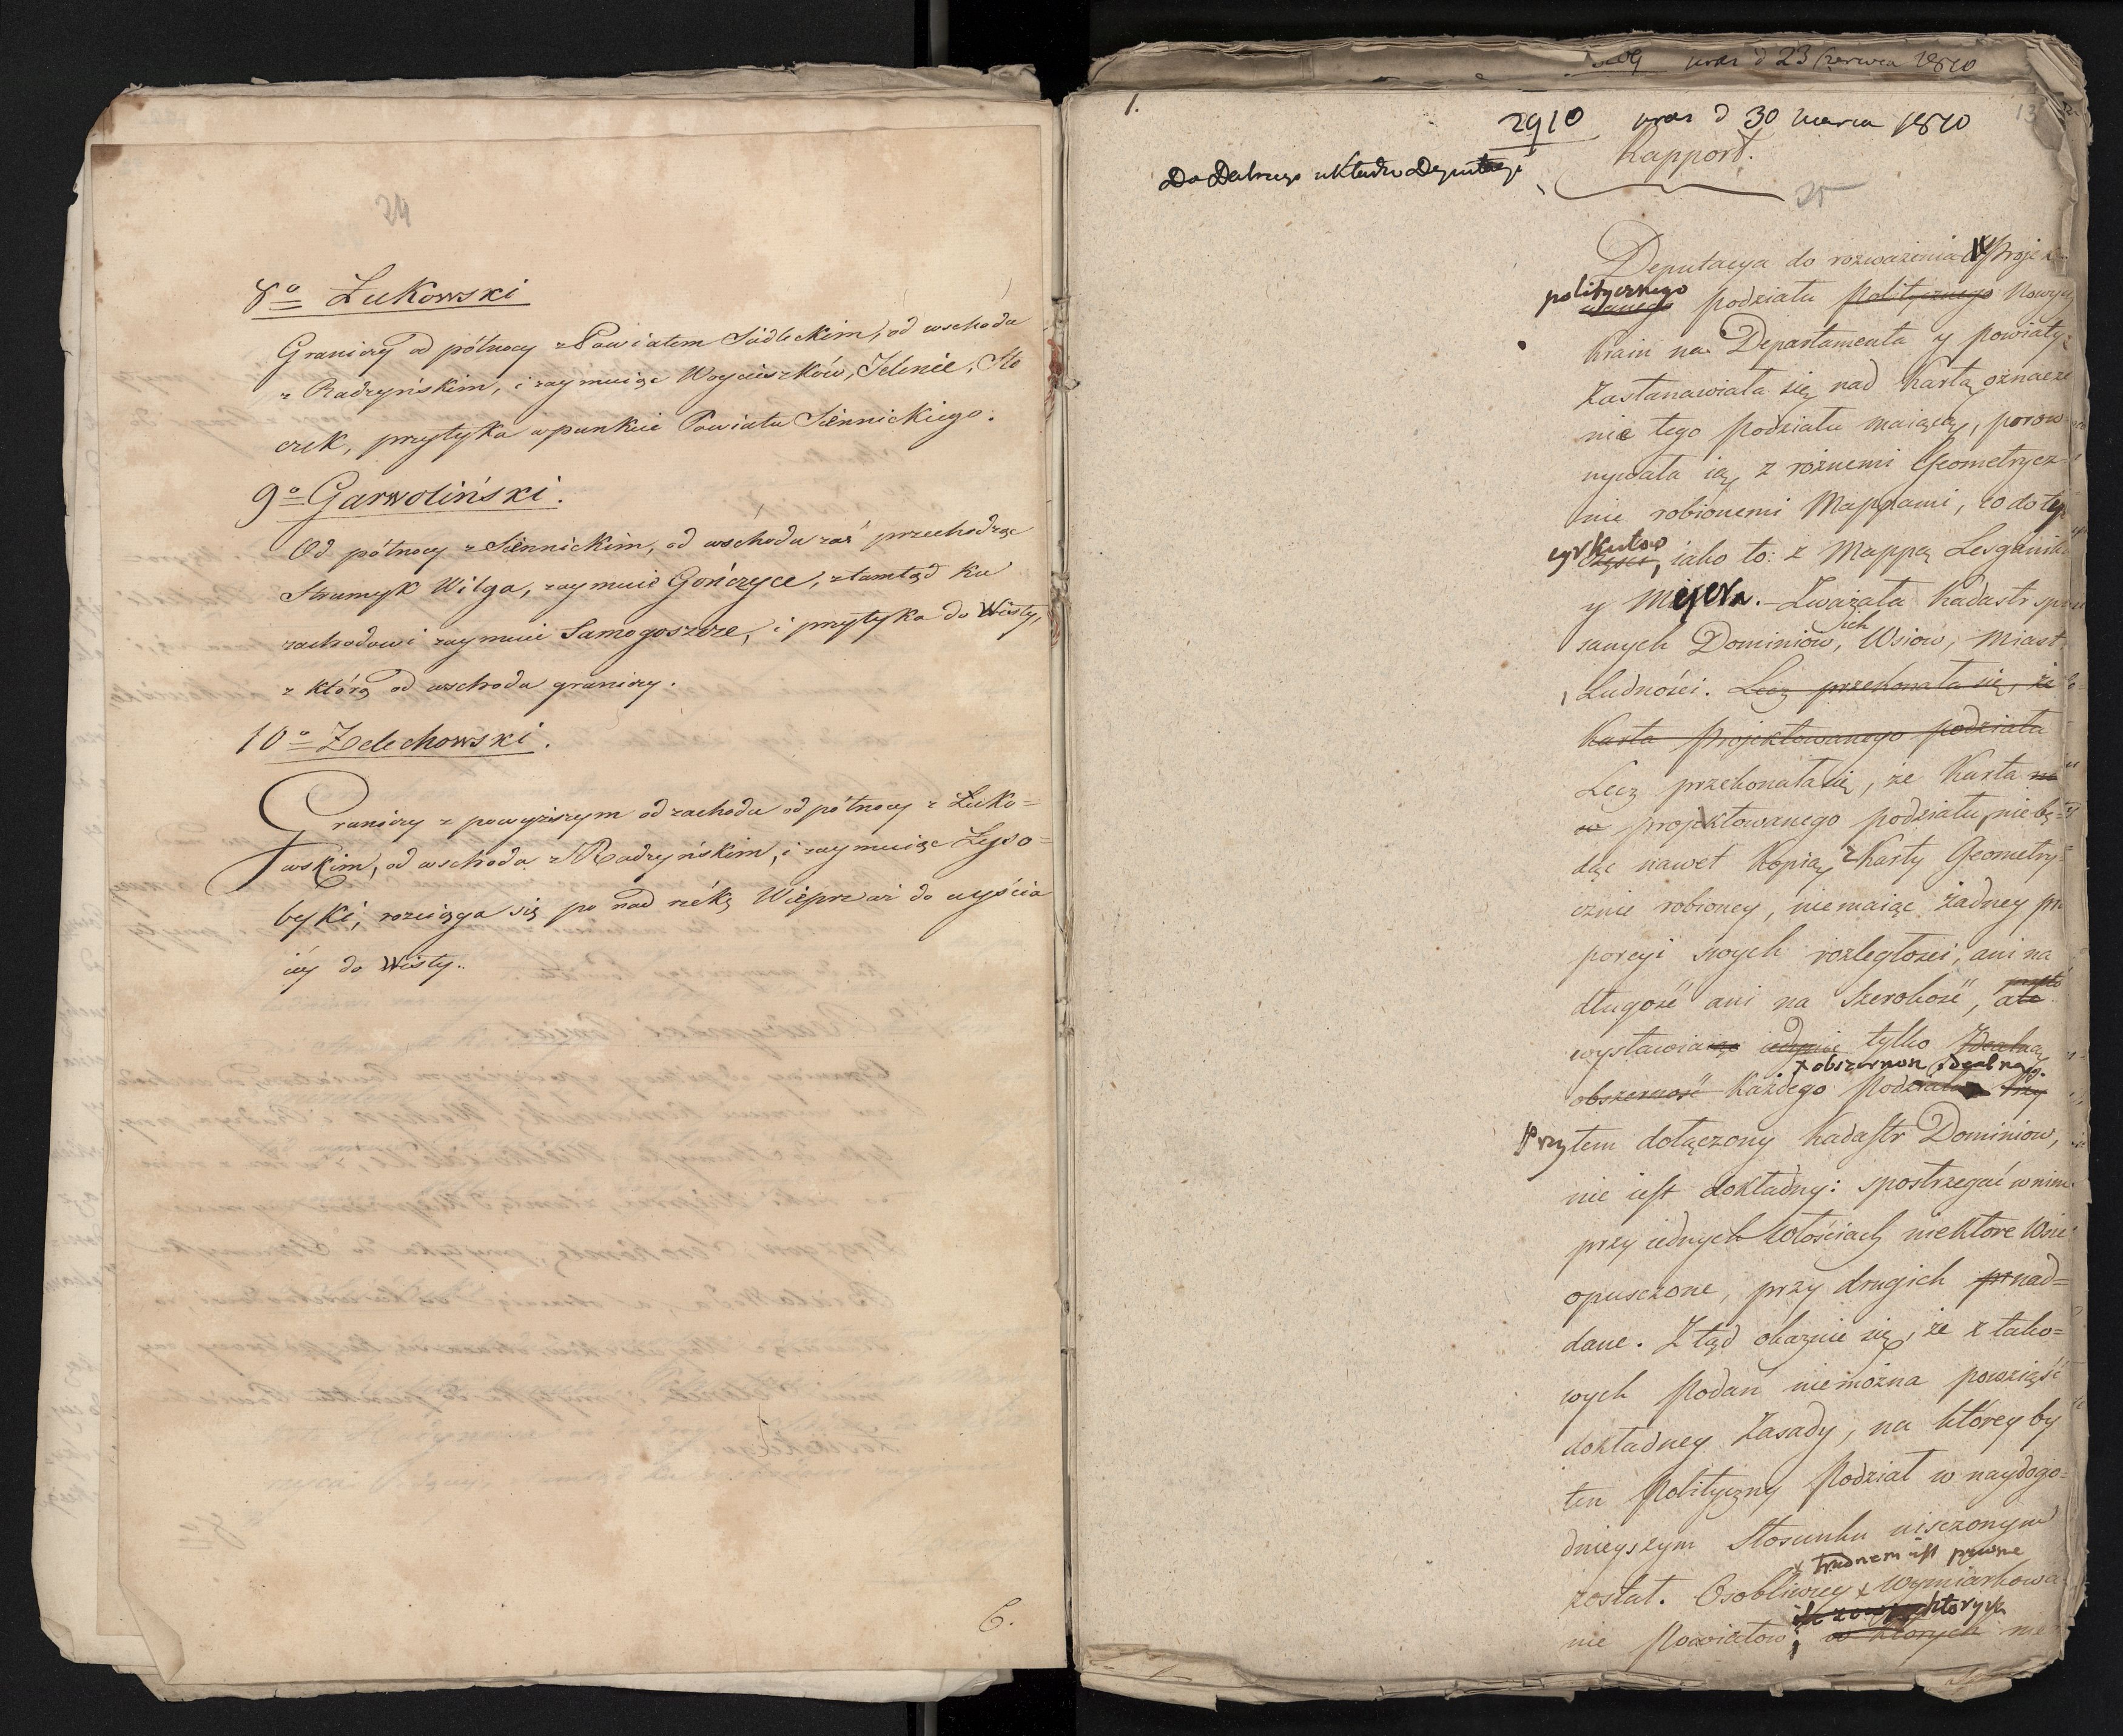 24
8o Łukowski
Graniczy od północy z Powiatem Siedleckim, od wschodu
z Radzyńskim, i zaymuiąc Woycieszków, Jelenie, Sto
czek, przytyka w punkcie Powiatu Siennickiego.
9o Garwoliński.
Od północy z Siennickim, od wschodu zaś przechodząc
Strumyk Wilga, zaymuie Gończyce, ztamtąd ku
zachodowi zaymuie Samogoszcze, i przytyka do Wisły,
z którą od wschodu graniczy.
10o Zelechowski.
Graniczy z powyższym od zachodu od północy z Łuko=
wskim, od wschodu z Radzyńskim, i zaymuiąc Lyso=
byki, rozciąga się po nad rzéką Wieprz aż do uyścia
iéy do Wisły.
6.
d 23 Czerwca 1810
1.
13
2910 d 30 marca 1810
Rapport.
Do Dalszego układu Deputacyi
25
Deputacya do rozważenia Proje
politycznego podziału Politycznego Nowych
Krain na Departamenta y powiaty
Zastanawiała się nad Kartą oznacze
nie tego Podziału maiącą, porow
nywała ią z różnemi Geometrycz
nie robionemi Mappami, co do tych
cyrkułow
Części, iako to: z Mappą Lesganika
y Mejera. Zważała Kadastr spi
sanych Dominiów, ich Wsiow, Miast
Ludności. Lecz przekonała się, że
Karta Projektowanego podziału
Lecz przekonała się, że Karta na
w projektowanego podziału, nie bę=
dąc nawet Kopią z Karty Geometry
cznie robioney, niemaiąc żadney pro
porcyi swych rozległości, ani na
długość ani na Szerokość, ale
wystawiaiąc iedynie tylko Idealną
x obszerność idealną
obszerność Każdego Podziału Przy
Przytem dołączony Kadastr Dominiow,
nie iest dokładny: spostrzegać w nim
przy iednych włościach niektóre Wsie
opusczone, przy drugich pr nad=
dane. Z tąd okazuie się, że z tako=
wych Podań niemożna powziąść
dokładney Zasady, na którey by
ten Polityczny Podział w naydogo=
dnieyszym Stosunku uisczonym
x trudnem iest pewne
został. Osobliwiey x Wymiarkowa
których
nie Powiatow; w których nie